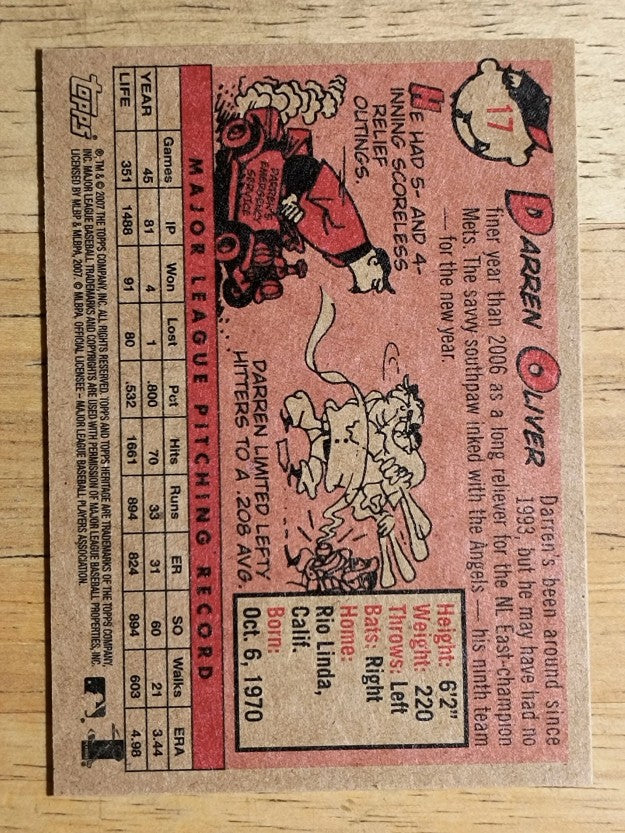 17
DARREN OLIVER
Darren's been around since
1993, but he may have had no
finer year than 2006 as a long reliever for the NL East-champion
Mets. The savvy southpaw inked with the Angels — his ninth team
— for the new year.
HE HAD 5- AND 4-
INNING SCORELESS
RELIEF
OUTINGS.
DARREN'S
EMERGENCY
SERVICE
DARREN LIMITED LEFTY
HITTERS TO A .208 AVG.
Height: 6'2"
Weight: 220
Throws: Left
Bats: Right
Home:
Rio Linda,
Calif.
Born:
Oct. 6, 1970
MAJOR LEAGUE PITCHING RECORD
Games IP Won Lost Pct Hits Runs ER SO Walks ERA
YEAR 45 81 4 1 .800 70 33 31 60 21 3.44
LIFE 351 1488 91 80 .532 1661 894 824 894 603 4.98
topps
®, TM & © 2007 THE TOPPS COMPANY, INC. ALL RIGHTS RESERVED. TOPPS AND TOPPS HERITAGE ARE TRADEMARKS OF THE TOPPS COMPANY,
INC. MAJOR LEAGUE BASEBALL TRADEMARKS AND COPYRIGHTS ARE USED WITH PERMISSION OF MAJOR LEAGUE BASEBALL PROPERTIES, INC.
LICENSED BY MLBP & MLBPA, 2007. © MLBPA, OFFICIAL LICENSEE – MAJOR LEAGUE BASEBALL PLAYERS ASSOCIATION.